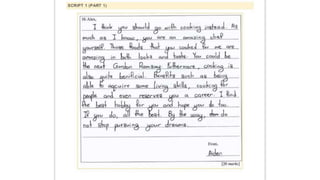 SCRIPT 1 (PART 1)
Hi Alex,
I think you should go with cooking instead. As
much as I know, you are an amazing chef
yourself. Those foods that you cooked for me are
amazing in both looks and taste. You could be
the next Gordon Ramsay. Futhermore, cooking is
also quite benificial. Benefits such as being
able to aquire some living skills, cooking for
people and even reserves you a career. I find
the best hobby for you and hope you do too.
If you do, all the best. By the way, do
not stop pursuing your dreams.
From,
Aiden
[20 marks]